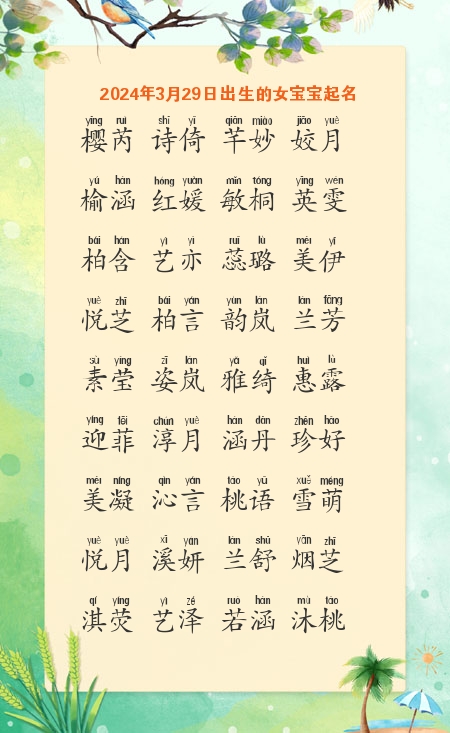 2024年3月29日出生的女宝宝起名
yīng ruì shī yǐ qiān miào jiāo yuè
樱芮 诗倚 芊妙 姣月
yú hán hóng yuàn mǐn tóng yīng wén
榆涵 红媛 敏桐 英雯
bǎi hán yì yì ruǐ lù měi yī
柏含 艺亦 蕊璐 美伊
yuè zhī bǎi yán yùn lán lán fāng
悦芝 柏言 韵岚 兰芳
sù yíng zī lán yǎ qǐ huì lù
素莹 姿岚 雅绮 惠露
yíng fēi chún yuè hán dān zhēn hǎo
迎菲 淳月 涵丹 珍好
měi níng qìn yán táo yǔ xuě méng
美凝 沁言 桃语 雪萌
yuè yuè xī yán lán shū yān zhī
悦月 溪妍 兰舒 烟芝
qí yíng yì zé ruò hán mù táo
淇荧 艺泽 若涵 沐桃